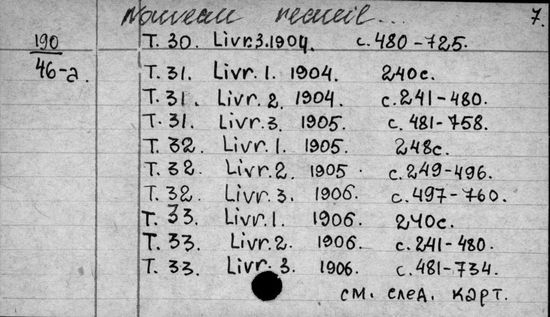 Nouveau recueil... 7.
190 T. 30. Livr. 3. 1904. с. 480-725.
46-а. T. 31. Livr. 1. 1904. 240с.
T. 31. Livr. 2. 1904. с. 241-480.
T. 31. Livr. 3. 1905. с. 481-758.
T. 32. Livr. 1. 1905. 248с.
T. 32. Livr. 2. 1905. с. 249-496.
T. 32. Livr. 3. 1906. с. 497-760.
T. 33. Livr. 1. 1906. 240с.
T. 33. Livr. 2. 1906. с. 241-480.
T. 33. Livr. 3. 1906. с. 481-734.
см. след. карт.